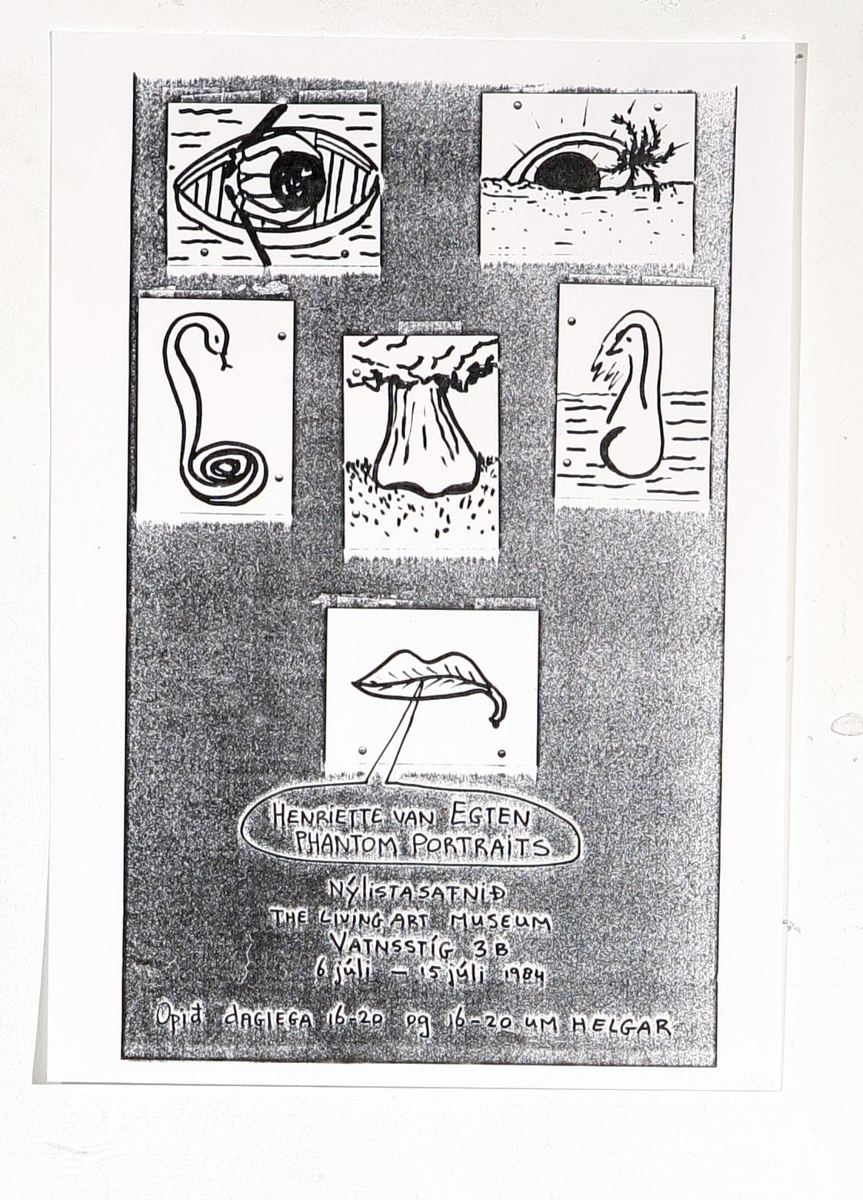 HENRIETTE VAN EGTEN
PHANTOM PORTRAITS
NÝlISTASAFNIÐ
THE LIVING ART MUSEUM
VATNSSTÍG 3B
6 júli – 15 júli 1984
Opið dAGlEGA 16-20 og 16-20 uM HELGAR